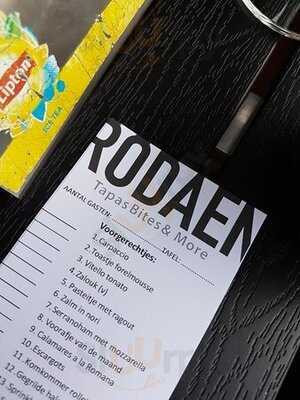 Lipton
ICE TEA
RODAEN
Tapas Bites & More
AANTAL GASTEN:
TAFEL:
Voorgerechtjes:
1. Carpaccio
2. Toastje forelmousse
3. Vitello tonato
4. Zalouk (v)
5. Pasteitje met ragout
6. Zalm in nori
7. Serranoham met mozzarella
8. Voorafje van de maand
9. Calamares a l. Romana
10. Escargots
11. Komkommer
12. Gegrilde